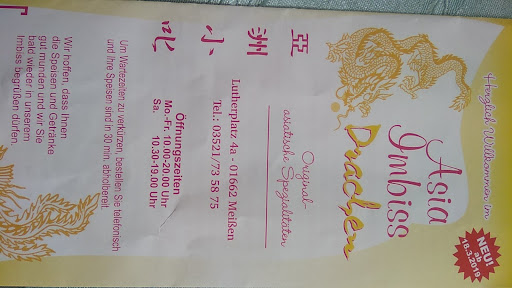 Herzlich Willkommen im
NEU!
ab
18.3.2019
Asia
Imbiss
Drachen
Original-
asiatische Spezialitäten
亞洲小吃
Lutherplatz 4a - 01662 Meißen
Tel.: 03521/73 58 75
Öffnungszeiten
Mo.-Fr. 10.00-20.00 Uhr
Sa. 10.30-19.00 Uhr
Um Wartezeiten zu verkürzen, bestellen Sie telefonisch
und Ihre Speisen sind in 30 min. abholbereit.
Wir hoffen, dass Ihnen
die Speisen und Getränke
gut munden und wir Sie
bald wieder in unserem
Imbiss begrüßen dürfen.